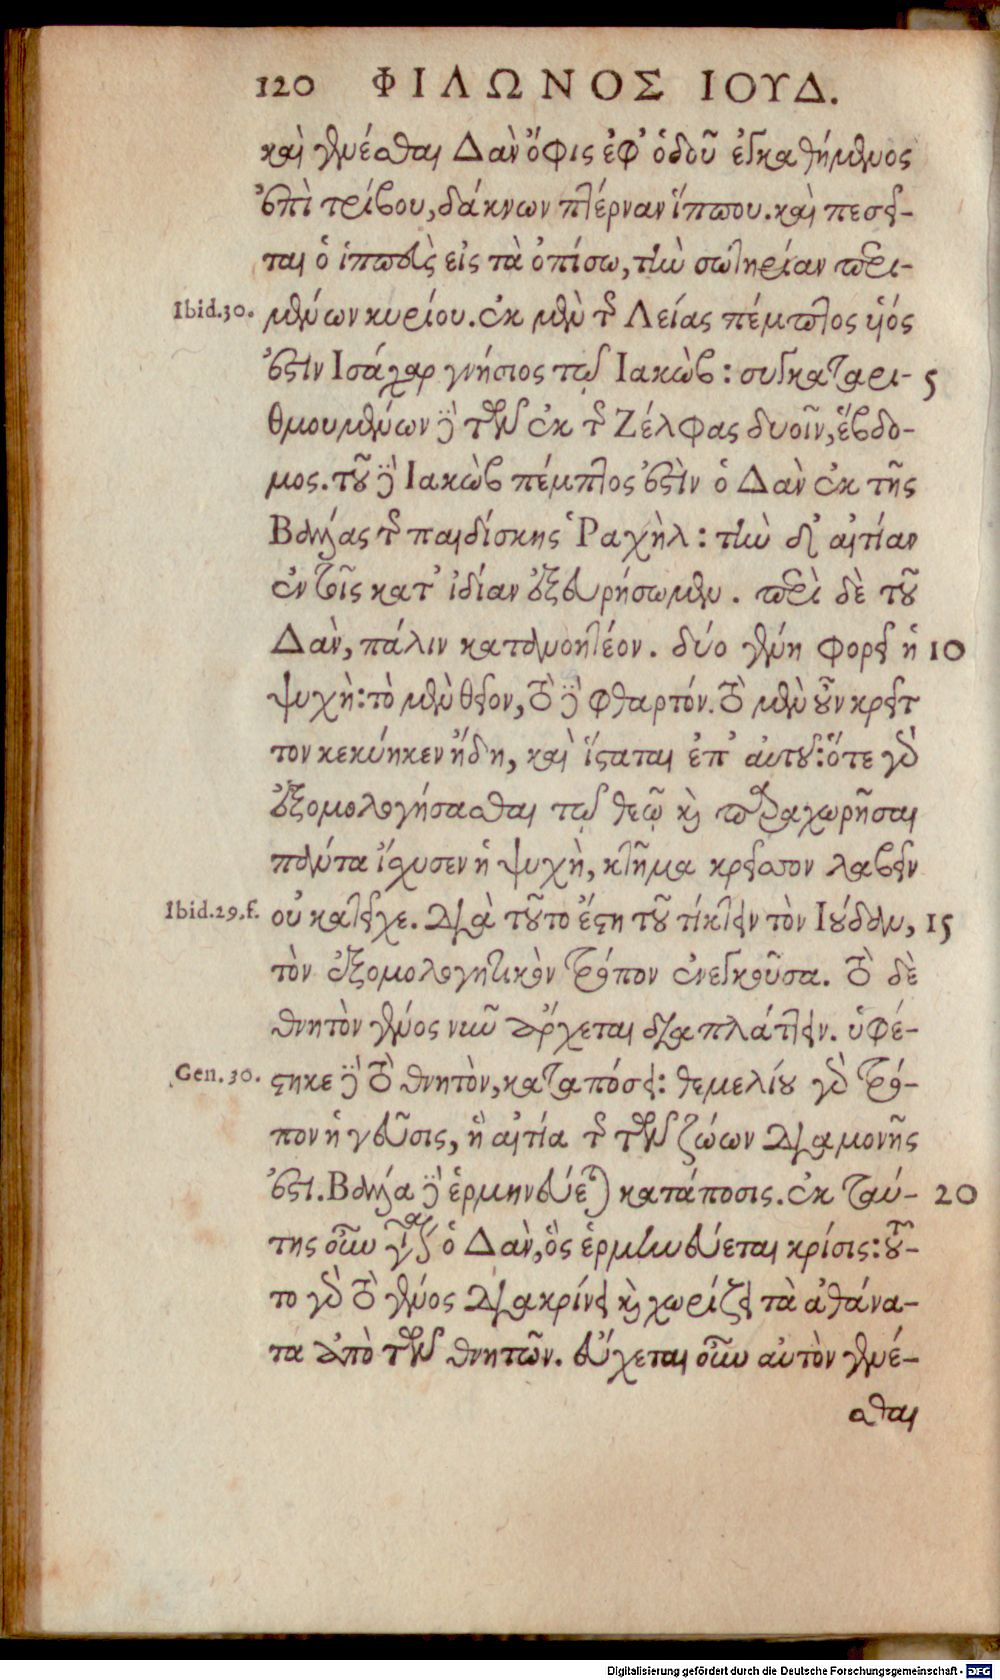 120 ΦΙΛΩΝΟΣ ΙΟΥΔ.
καὶ γενέσθαι Δὰν ὄφις ἐφ᾽ ὁδοῦ ἐγκαθήμενος
ἐπὶ τρίβου, δάκνων πτέρναν ἵππου. καὶ πεσεῖ-
ται ὁ ἱππεὺς εἰς τὰ ὀπίσω, τὴν σωτηρίαν περι-
Ibid.30. μένων κυρίου. ἐκ μὲν τῆς Λείας πέμπτος υἱός
ἐστιν Ισάχαρ γνήσιος τῷ Ιακώβ: συγκαταρι- 5
θμουμένων δὲ τῶν ἐκ τῆς Ζέλφας δυοῖν, ἕβδο-
μος. τοῦ δὲ Ιακὼβ πέμπτος ἐστὶν ὁ Δὰν ἐκ τῆς
Βαλλάς τῆς παιδίσκης Ῥαχὴλ: τὴν δ᾽ αἰτίαν
ἐν τοῖς κατ᾽ ἰδίαν ἐξευρήσωμεν. περὶ δὲ τοῦ
Δὰν, πάλιν κατανοητέον. δύο γένη φορεῖ ἡ 10
ψυχὴ: τὸ μὲν θεῖον, τὸ δὲ φθαρτόν. τὸ μὲν οὖν κρεῖτ
τον κεκύηκεν ἤδη, καὶ ἵσταται ἐπ᾽ αὐτοῦ: ὅτε γὰρ
ἐξομολογήσασθαι τῷ θεῷ καὶ παραχωρῆσαι
πάντα ἴσχυσεν ἡ ψυχὴ, κτῆμα κρεῖσσον λαβεῖν
Ibid.29.f. οὐκ ἀτεῖχε. διὰ τοῦτο ἔστη τοῦ τίκτειν τὸν Ιούδαν, 15
τὸν ἐξομολογητικὸν τρόπον ἐνεγκοῦσα. τὸ δὲ
θνητὸν γένος νῦν ἄρχεται διαπλάττειν. ὑφέ-
Gen.30. στηκε δὲ τὸ θνητὸν, καταπόσει: θεμελίου γὰρ τρό-
πον ἡ γεῦσις, ἡ αἰτία τῆς τῶν ζώων διαμονῆς
ἐστι. Βαλλά δὲ ἑρμηνεύεται κατάποσις. ἐκ ταύ- 20
της οὖν γίνεται ὁ Δὰν, ὃς ἑρμηνεύεται κρίσις: τοῦ-
το γὰρ τὸ γένος διακρίνει καὶ χωρίζει τὰ ἀθάνα-
τα ἀπὸ τῶν θνητῶν. εὔχεται οὖν αὐτὸν γενέ-
σθαι
Digitalisierung gefördert durch die Deutsche Forschungsgemeinschaft - DFG